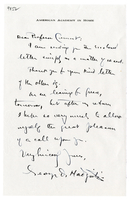 AMERICAN ACADEMY IN ROME
Dear Professor
I am sending you the enclosed
letter simply as a matter of record.
Thank you for your kind letter
of the other
We are leaving for
tomorrow, but after my return
I hope so very much to allow
myself the great pleasure
of a call upon you.
Very sincerely yours,
George D.